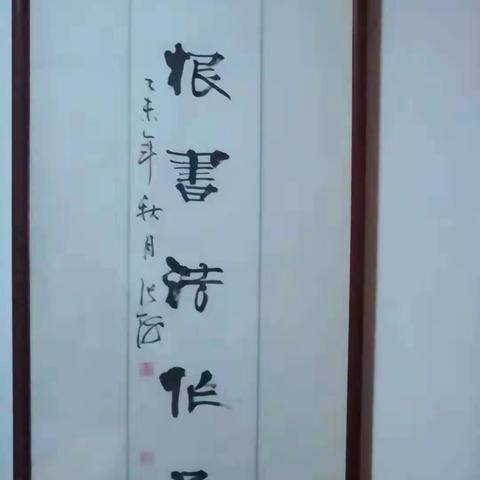 根書法作
乙未年秋月